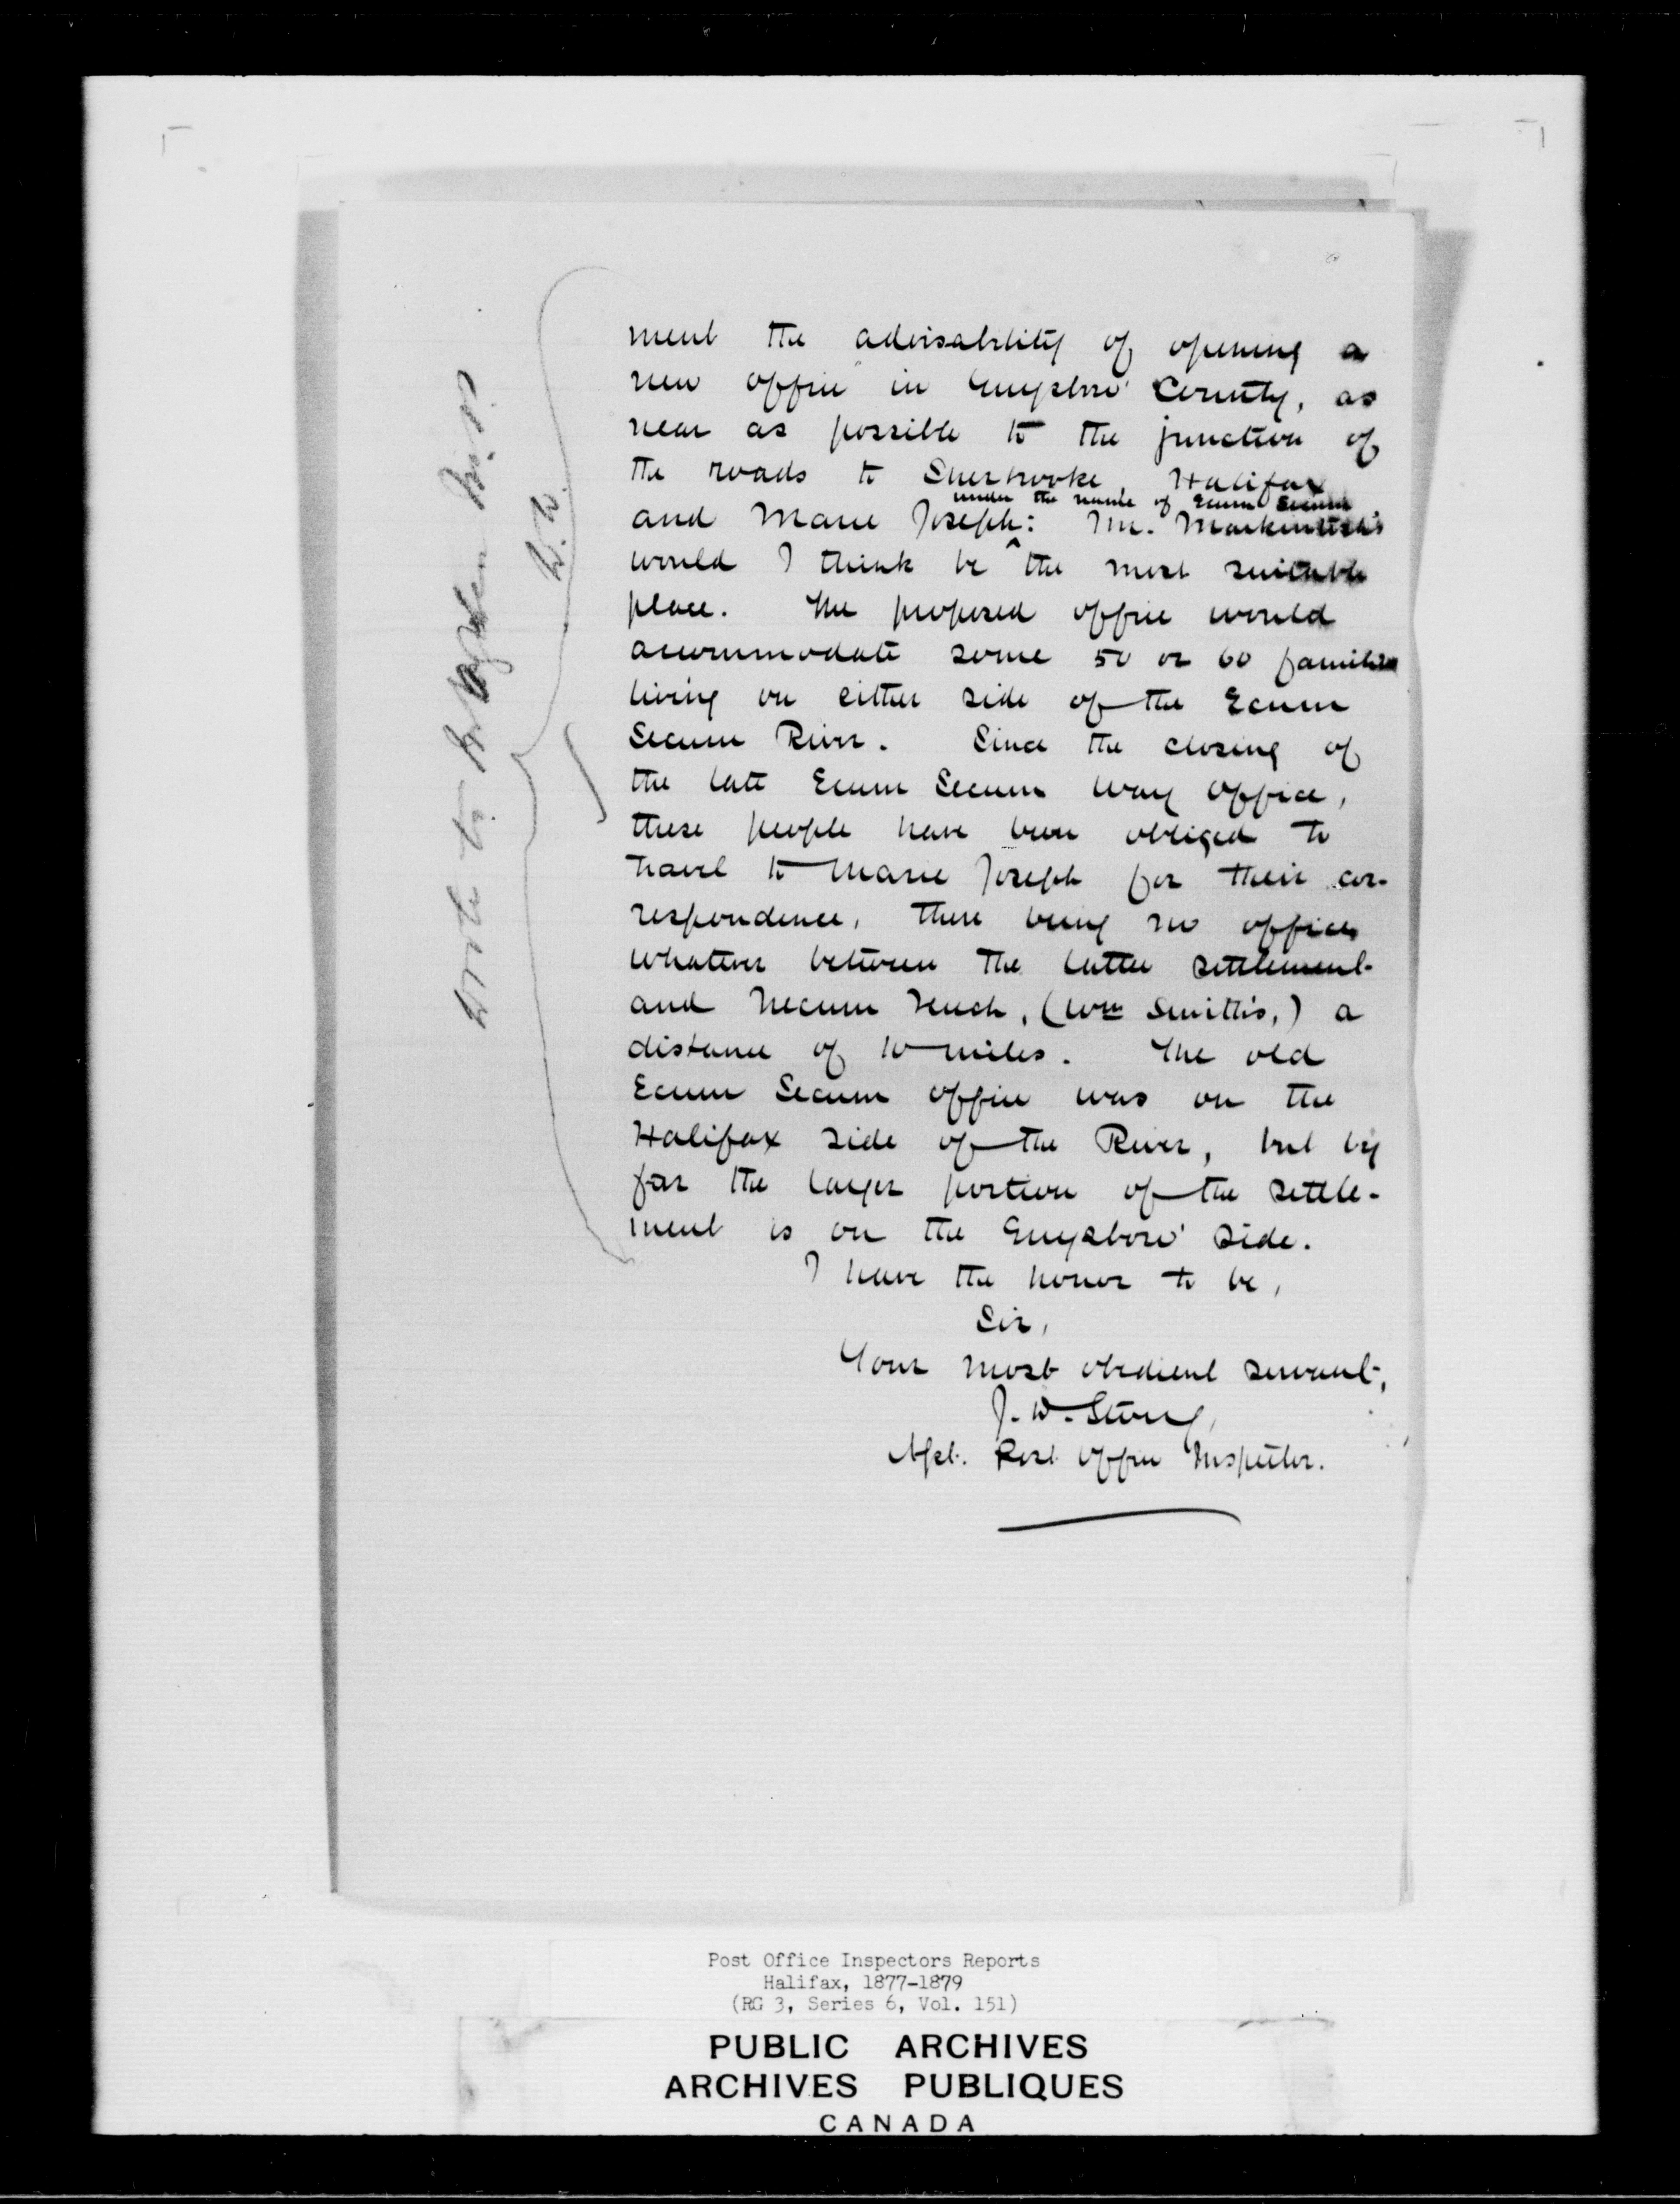 ment the advisability of opening a
new office in Guysboro' County, as
near as possible to the junction of
the roads to Sherbrooke, Halifax
under the name of Ecum Secum
and Marie Joseph: Mr. Mackintosh's
would I think be ^ the most suitable
place. The proposed office would
accommodate some 50 or 60 families
living on either side of the Ecum
Secum River. Since the closing of
the late Ecum Secum Way Office,
these people have been obliged to
travel to Marie Joseph for their cor-
respondence, there being no office
whatever between the latter settlement
and Necum Teuch, (Wm Smith's,) a
distance of 10 miles. The old
Ecum Secum office was on the
Halifax side of the River, but by
far the larger portion of the settle-
ment is on the Guysboro' side.
I have the honor to be,
Sir,
Your most obedient servant,
J. W. Story,
Asst. Post Office Inspector.
Post Office Inspectors Reports
Halifax, 1877-1879
(RG 3, Series 6, Vol. 151)
PUBLIC ARCHIVES
ARCHIVES PUBLIQUES
CANADA